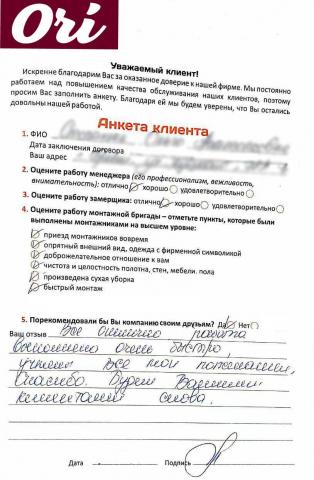 Ori
Уважаемый клиент!
Искренне благодарим Вас за оказанное доверие к нашей фирме. Мы постоянно
работаем над повышением качества обслуживания наших клиентов, поэтому
просим Вас заполнить анкету. Благодаря ей мы будем уверены, что Вы остались
довольны нашей работой.
Анкета клиента
1. ФИО
Дата заключения договора
Ваш адрес
2. Оцените работу менеджера (его профессионализм, вежливость,
внимательность): отлично хорошо удовлетворительно
3. Оцените работу замерщика: отлично хорошо удовлетворительно
4. Оцените работу монтажной бригады – отметьте пункты, которые были
выполнены монтажниками на высшем уровне:
приезд монтажников вовремя
опрятный внешний вид, одежда с фирменной символикой
доброжелательное отношение к вам
чистота и целостность полотна, стен, мебели. пола
произведена сухая уборка
быстрый монтаж
5. Порекомендовали бы Вы компанию своим друзьям? Да Нет
Ваш отзыв Все отлично работа
выполнена очень быстро,
учтены все мои пожелания,
Спасибо. Будем Вашими
клиентами снова.
Дата Подпись